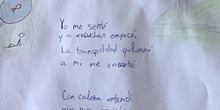 Yo me senté
y a escuchar empecé.
La tranquilidad
a mi me encantó
Con calma entendí